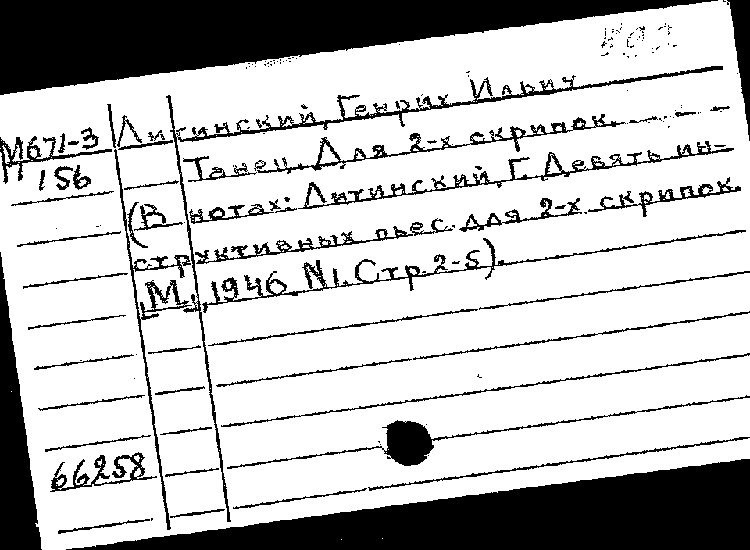 М671-3
156
Литинский, Генрих Ильич
Танец. Для 2-х скрипок.
(В нотах: Литинский, Г. Девять ин-
структивных пьес для 2-х скрипок.
[М.], 1946. N1. Стр. 2-5).
66258